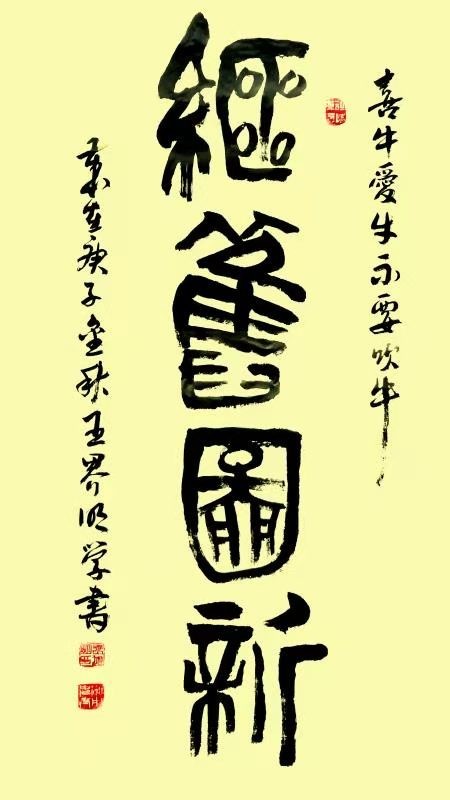 喜牛愛牛不要吹牛
繼舊圖新
歲在庚子金秋王界明学書